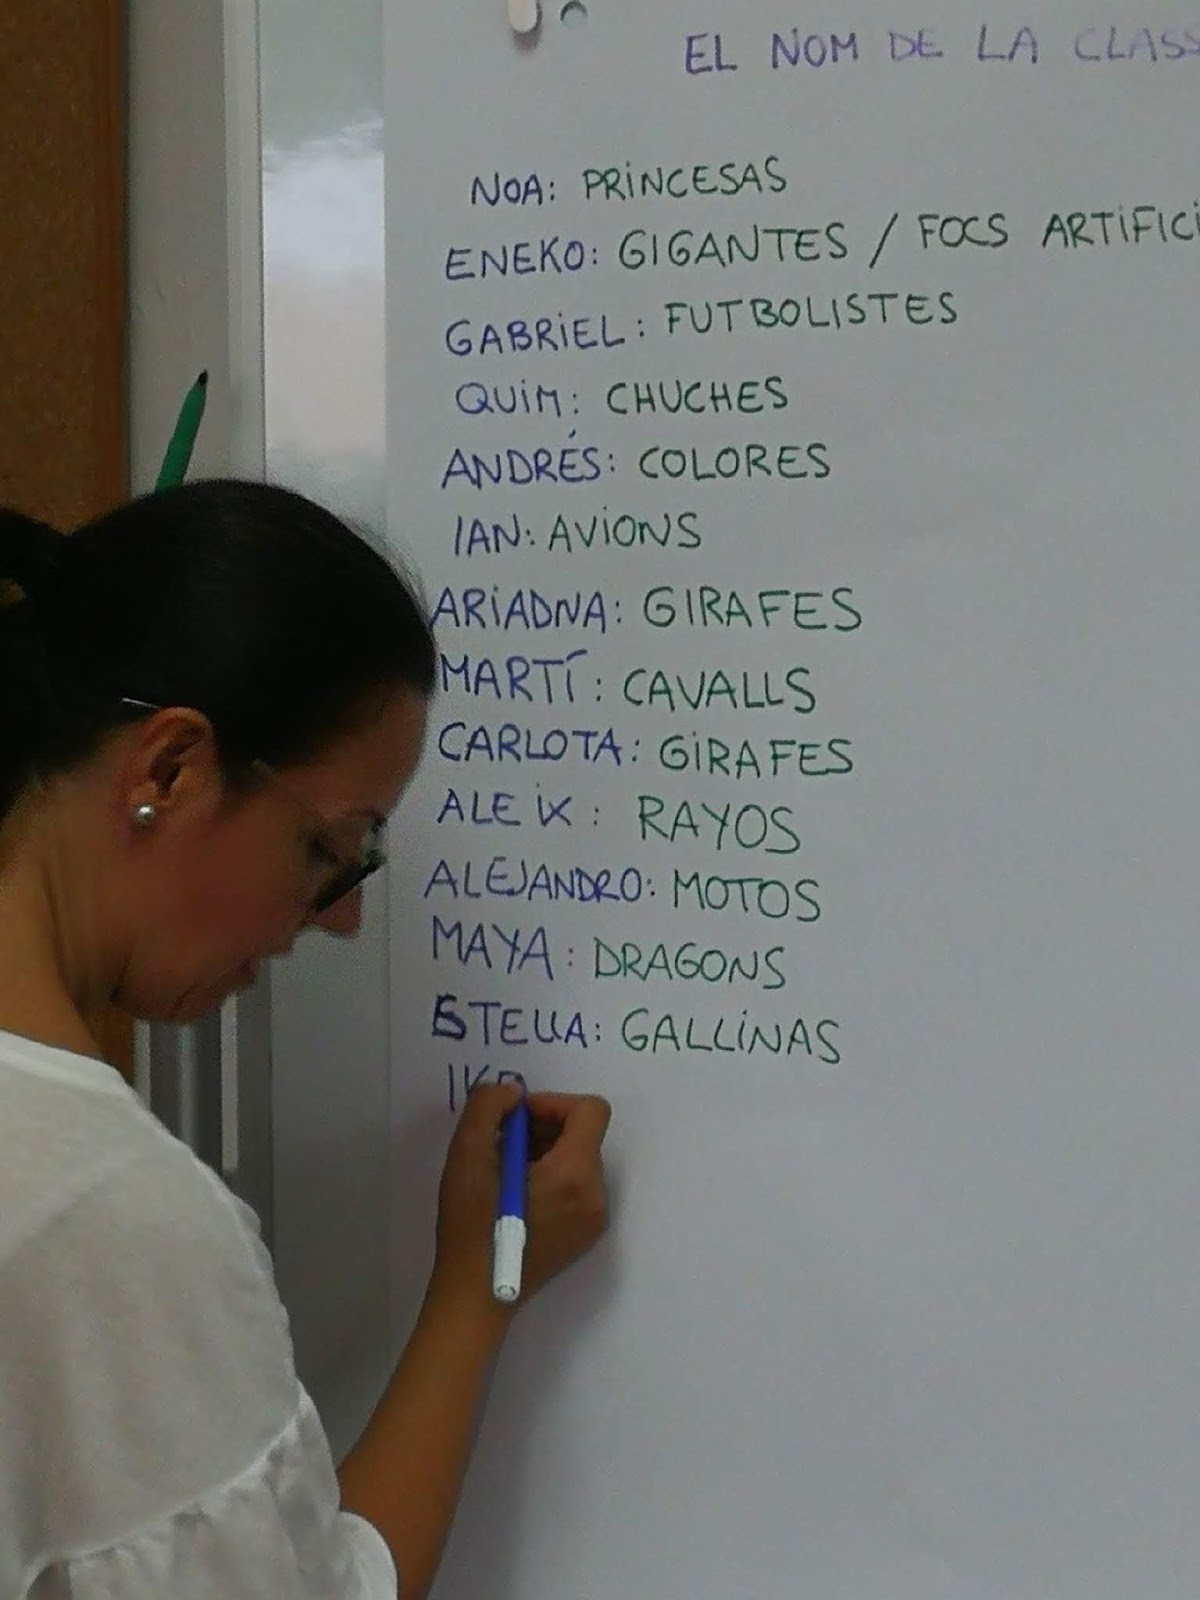 EL NOM DE LA CLASS
NOA: PRINCESAS
ENEKO: GIGANTES / FOCS ARTIFICI
GABRIEL: FUTBOLISTES
QUIM: CHUCHES
ANDRÉS: COLORES
IAN: AVIONS
ARIADNA: GIRAFES
MARTÍ: CAVALLS
CARLOTA: GIRAFES
ALEIX: RAYOS
ALEJANDRO: MOTOS
MAYA: DRAGONS
ESTELLA: GALLINAS